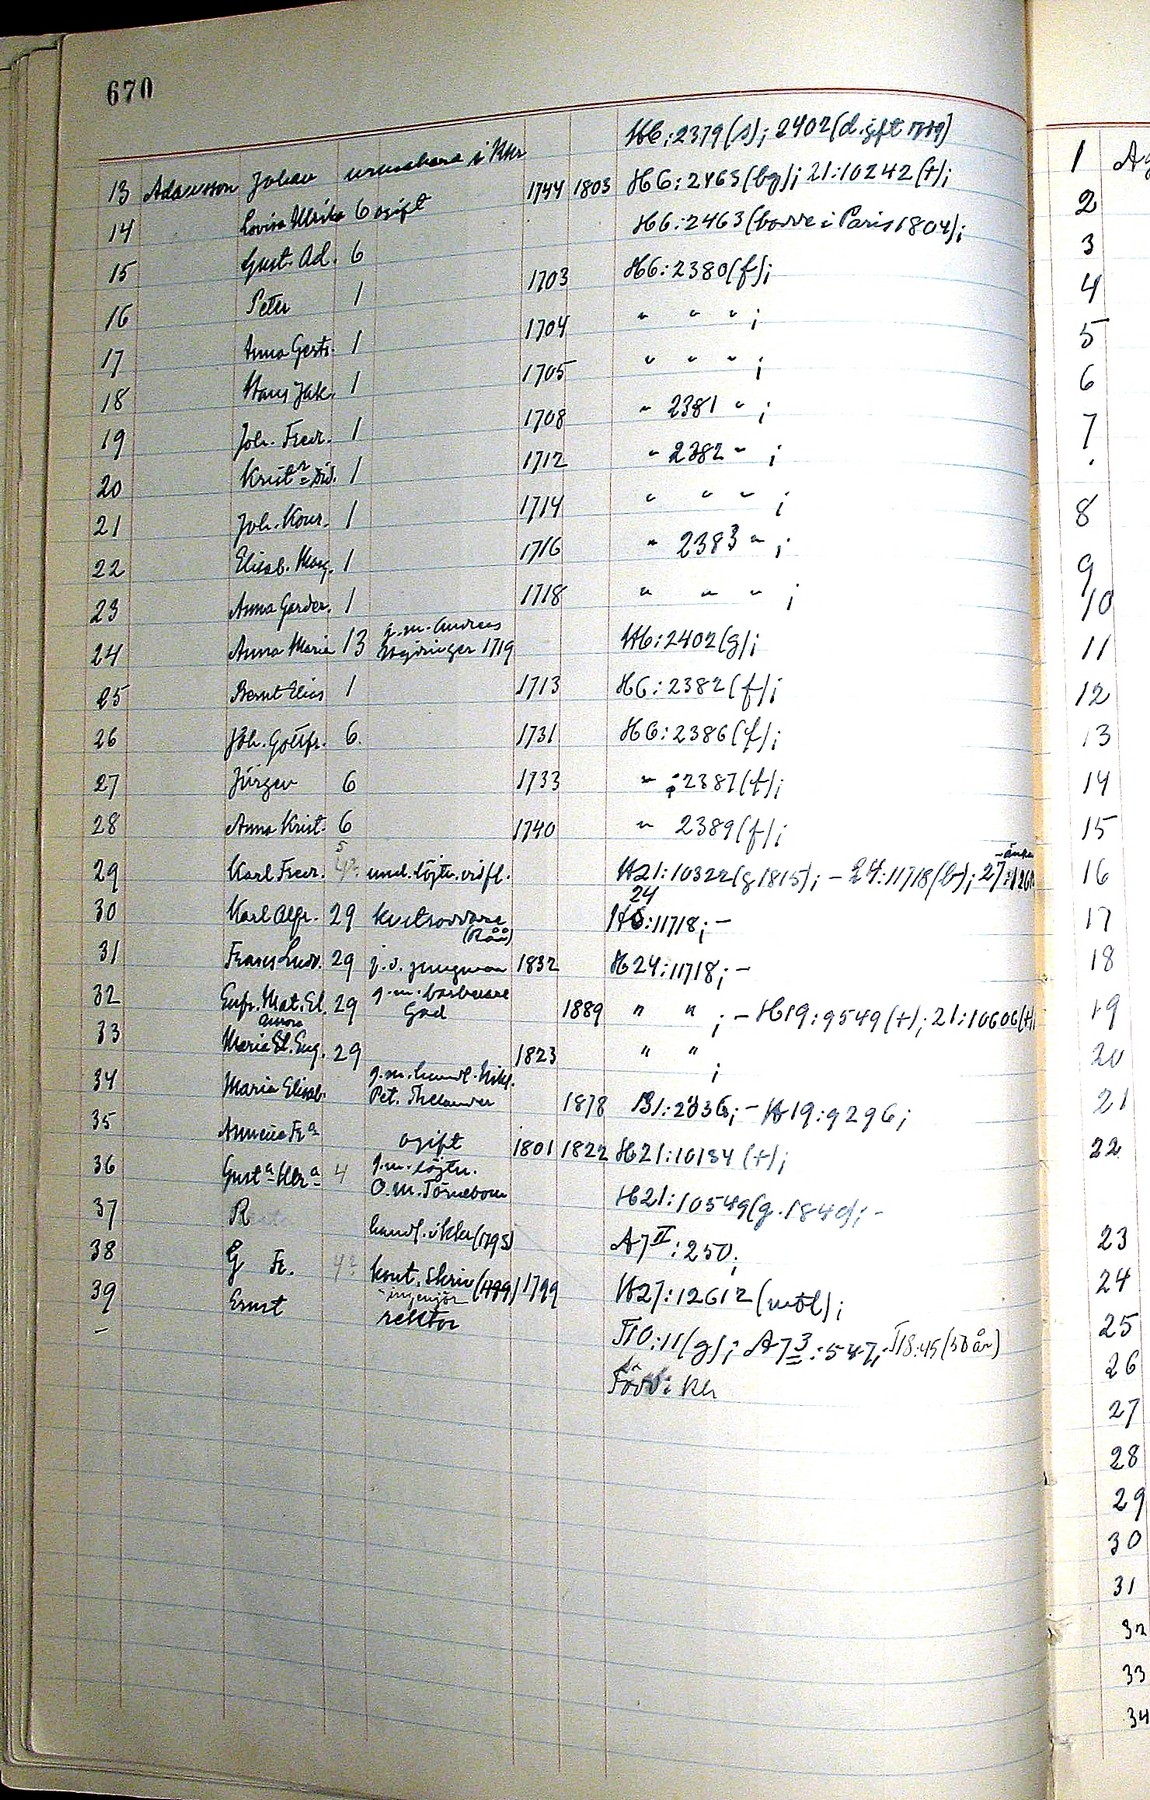 670
H6:2379(s); 2402(d. gift 1719)
13 Adamsson Johan i Khr 1744 1803 H6:2463(bg); 21:10242(+);
14 Lovisa Ulrika 6 ogift H6:2463(borre i Paris 1804);
15 Gust. Ad. 6 1703 H6:2380(f);
16 Peter 1 1704 " " " ;
17 Anna Gertr. 1 1705 " " " ;
18 Hans Jak. 1 1708 " 2381 " ;
19 Joh. Fredr. 1 1712 " 2382 " ;
20 1 1714 " " " ;
21 Joh. Konr. 1 1716 " 2383 " ;
22 Elisab. Marg. 1 1718 " " " ;
23 Anna 1
24 Anna Maria 13 g.m. Andreas 1719 H6:2402(g);
25 Bernt Elias 1 1713 H6:2382(f);
26 Joh. Gottfr. 6. 1731 H6:2386(f);
27 Jürgen 6 1733 " :2387(f);
28 Anna Krist. 6 1740 " 2389(f);
29 Karl Fredr. und.löjtn. H21:10322(g 1815); – 24:11718(b);
30 Karl Alfr. 29 (Råå) H24:11718; –
31 Frans Ludv. 29 j.v. jungman 1832 H24:11718; –
32 Eufr. Mat. El. 29 g.m. barberare Gad 1889 " " ; – H19:9549(+); 21:10606(+)
33 Aurora Maria El. Eug. 29 1823 " " ;
34 Maria Elisab. g.m. handl. Nikl. Pet. Thelander 1878 B1:2036; – H19:9296;
35 ogift 1801 1822 H21:10184(+);
36 Gust:a Klr:a 4 g.m. löjtn. O.M. Törnebom H21:10549(g. 1840); –
37 R handl. i Khr (1795) A7II:250;
38 G Fr. 4? kont. skriv (1799) 1799 H27:12612 (mtl);
39 Ernst ingenjör rektor T10:11(g); A7 3:547; T18:45(50 år)
– Född i Khr
1
2
3
4
5
6
7
8
9
10
11
12
13
14
15
16
17
18
19
20
21
22
23
24
25
26
27
28
29
30
31
32
33
34